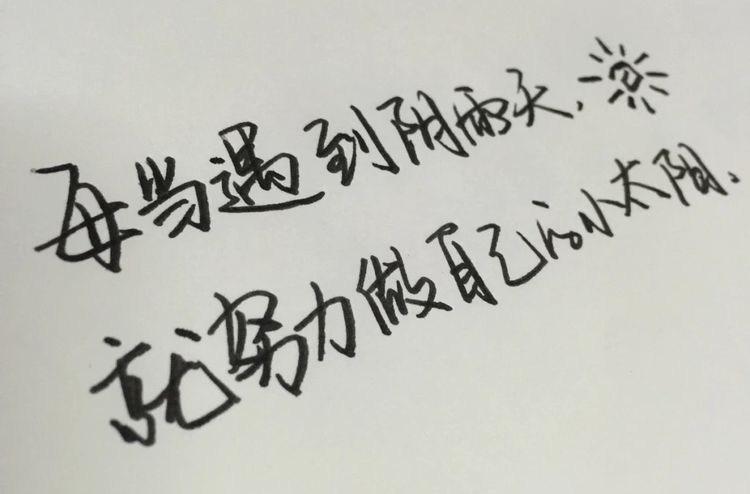 每当遇到阴雨天.
就努力做自己的小太阳.